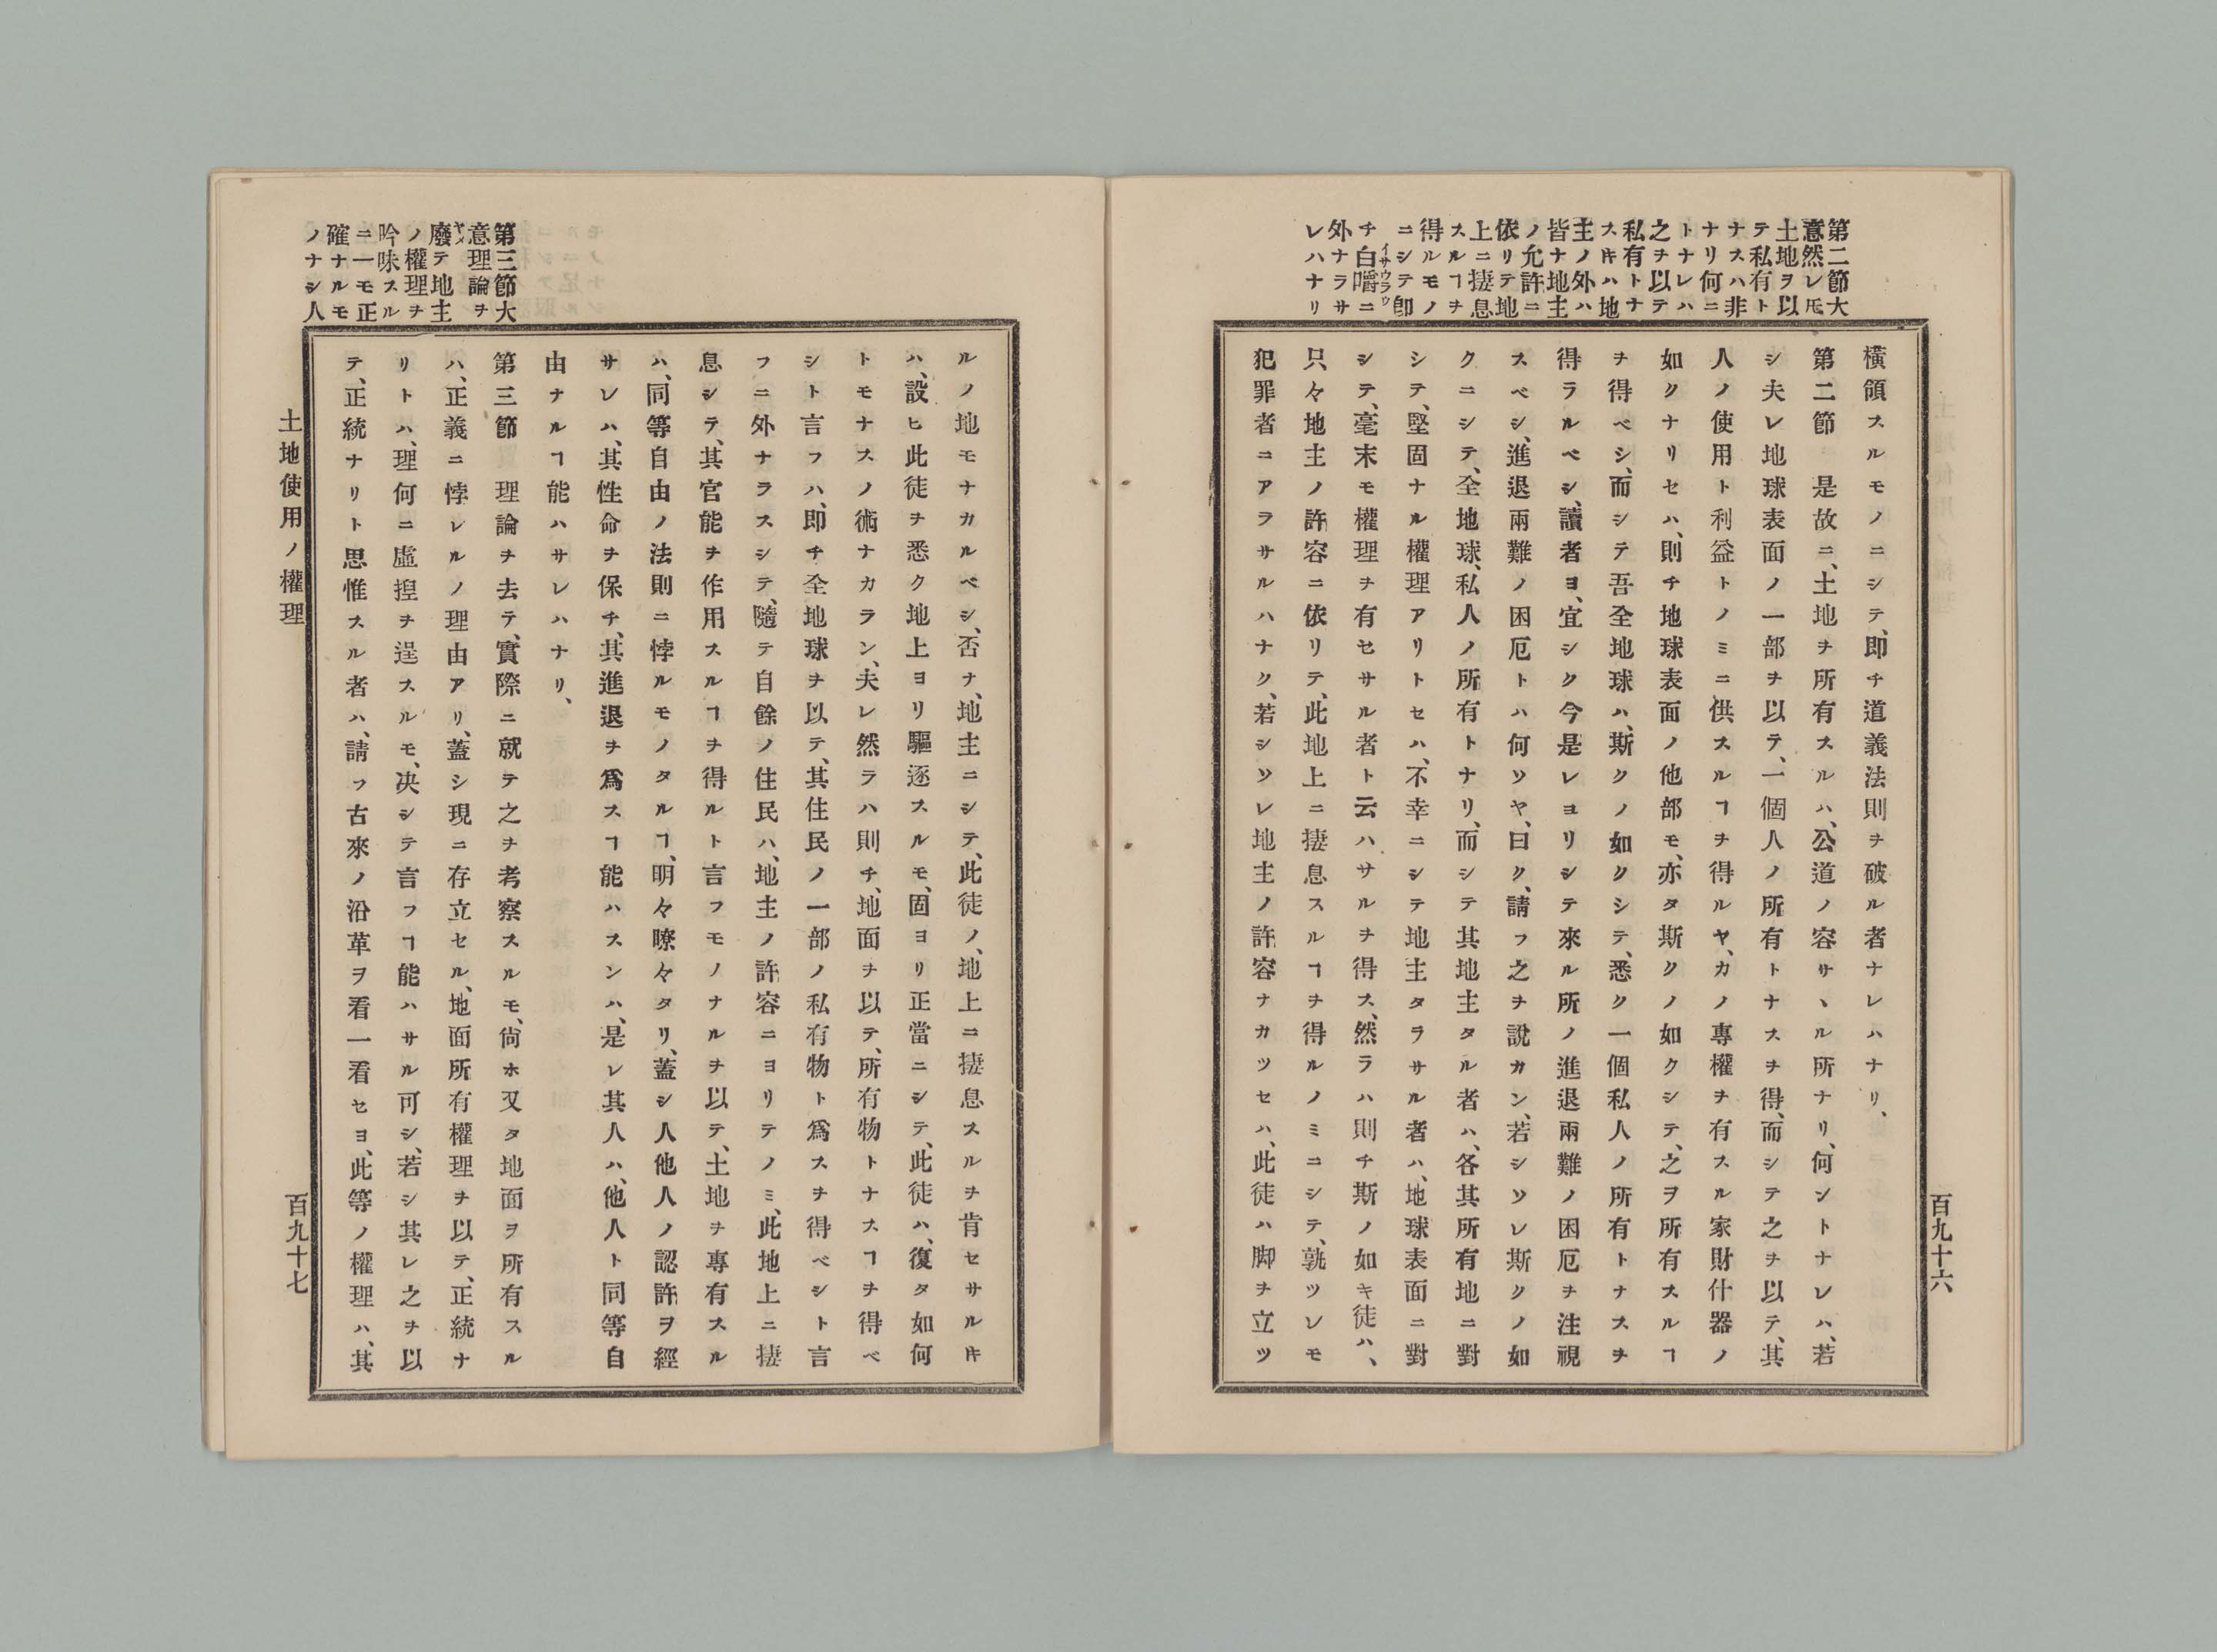 第二節大
意然レ𪜈
土地ヲ以
テ私有ト
ナスハ非
ナリ何ニ
トナレハ
之ヲ以テ
私有トナ
スキハ地
主ノ外ハ
皆ナ地主
ノ允許ニ
依リテ地
上ニ捿息
スルヿヲ
得ルモノ
ニシテ卽
チ白嚼ニ
イサウラウ
外ナラサ
レハナリ
橫領スルモノニシテ、即チ道義法則ヲ破ル者ナレハナリ、
第二節　是故ニ、土地ヲ所有スルハ、公道ノ容サヽル所ナリ、何ントナレハ、若
シ夫レ地球表面ノ一部ヲ以テ、一個人ノ所有トナスヲ得、而シテ之ヲ以テ、其
人ノ使用ト利益トノミニ供スルヿヲ得ルヤ、カノ專權ヲ有スル家財什器ノ
如クナリセハ、則チ地球表面ノ他部モ、亦タ斯クノ如クシテ、之ヲ所有スルヿ
ヲ得ベシ、而シテ吾全地球ハ、斯クノ如クシテ、悉ク一個私人ノ所有トナスヲ
得ラルベシ、讀者ヨ、宜シク今是レヨリシテ來ル所ノ進退兩難ノ困厄ヲ注視
スベシ、進退兩難ノ困厄トハ何ソヤ、曰ク、請フ之ヲ說カン、若シソレ斯クノ如
クニシテ、全地球、私人ノ所有トナリ、而シテ其地主タル者ハ、各其所有地ニ對
シテ、堅固ナル權理アリトセハ、不幸ニシテ地主タラサル者ハ、地球表面ニ對
シテ、毫末モ權理ヲ有セサル者ト云ハサルヲ得ス、然ラハ則チ斯ノ如キ徒ハ、
只々地主ノ許容ニ依リテ、此地上ニ捿息スルヿヲ得ルノミニシテ、孰ツレモ
犯罪者ニアラサルハナク、若シソレ地主ノ許容ナカツセハ、此徒ハ脚ヲ立ツ
百九十六
第三節大
意理論ヲ
ヤメ
廢テ地主
ノ權理ヲ
吟味スル
ニ一モ正
確ナルモ
ノナシ人
ルノ地モナカルベシ、否ナ、地主ニシテ、此徒ノ、地上ニ捿息スルヲ肯セサルキ
ハ、設ヒ此徒ヲ悉ク地上ヨリ驅逐スルモ、固ヨリ正當ニシテ、此徒ハ、復タ如何
トモナスノ術ナカラン、夫レ然ラハ則チ、地面ヲ以テ、所有物トナスヿヲ得ベ
シト言フハ、即チ全地球ヲ以テ、其住民ノ一部ノ私有物ト爲スヲ得ベシト言
フニ外ナラスシテ、隨テ自餘ノ住民ハ、地主ノ許容ニヨリテノミ、此地上ニ捿
息シテ、其官能ヲ作用スルヿヲ得ルト言フモノナルヲ以テ、土地ヲ專有スル
ハ、同等自由ノ法則ニ悖ルモノタルヿ、明々瞭々タリ、蓋シ人他人ノ認許ヲ經
サレハ、其性命ヲ保チ、其進退ヲ爲スヿ能ハスンハ、是レ其人ハ、他人ト同等自
由ナルヿ能ハサレハナリ、
第三節　理論ヲ去テ、實際ニ就テ之ヲ考察スルモ、尙ホ又タ地面ヲ所有スル
ハ、正義ニ悖レルノ理由アリ、蓋シ現ニ存立セル、地面所有權理ヲ以テ、正統ナ
リトハ、理何ニ虛揑ヲ逞スルモ、决シテ言フヿ能ハサル可シ、若シ其レ之ヲ以
テ、正統ナリト思惟スル者ハ、請フ古來ノ沿革ヲ看一看セヨ、此等ノ權理ハ、其
土地使用ノ權理
百九十七